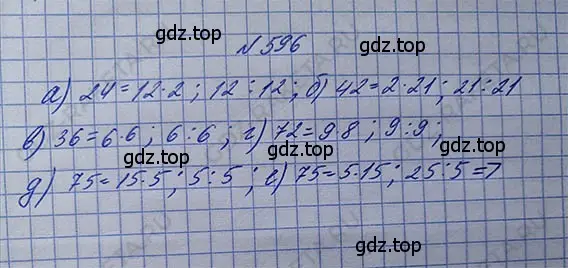 gdz.top
№596
gdz.top
а) 24=12·2; 12:12; б) 42=2·21; 21:21
в) 36=6·6; 6:6; г) 72=9·8; 9:9;
gdz.top
д) 75=15·5; 5:5; е) 75=5·15; 25:5=7
gdz.top
gdz.top